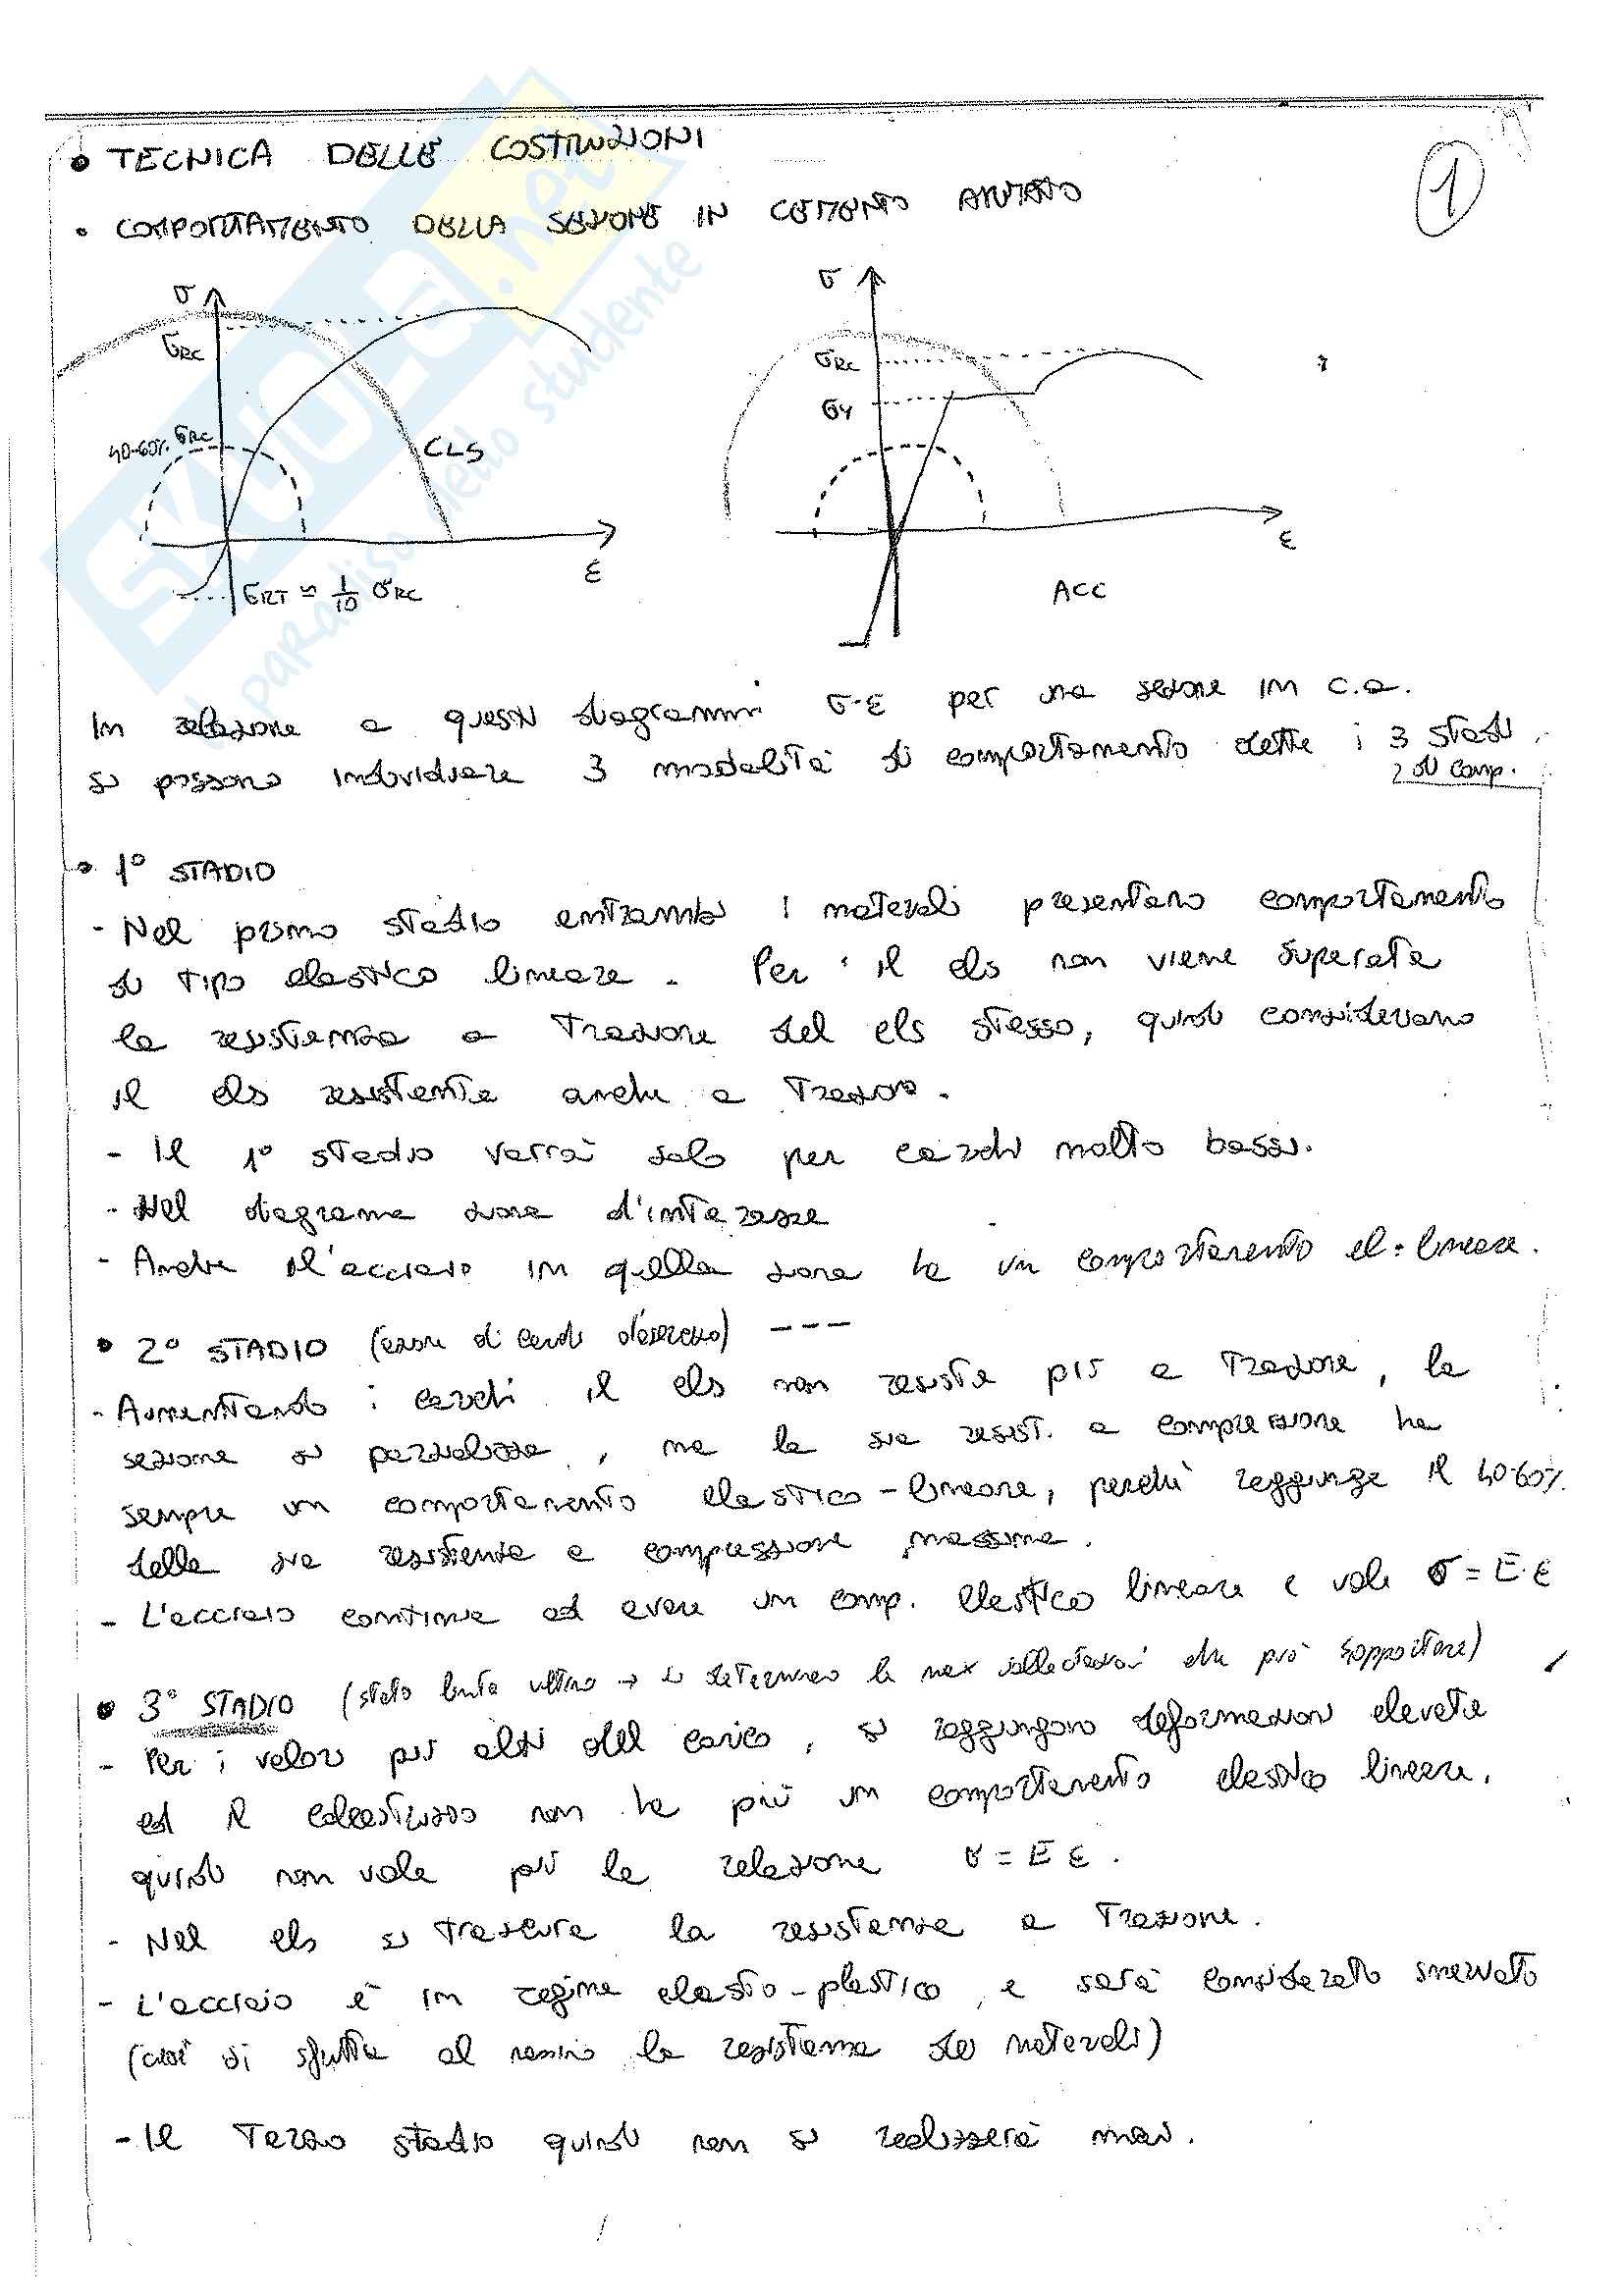 • TECNICA DELLE COSTRUZIONI
1
• COMPORTAMENTO DELLA SEZIONE IN CEMENTO ARMATO
σ
σRC
40-60% σRC
CLS
ε
σRT ≃ 1/10 σRC
σ
σRC
σY
ε
ACC
In relazione a questi diagrammi σ-ε per una sezione in c.a.
si possono individuare 3 modalità di comportamento dette i 3 stadi
di comp.
• 1° STADIO
- Nel primo stadio entrambi i materiali presentano comportamento
di tipo elastico lineare. Per il cls non viene superata
la resistenza a trazione del cls stesso, quindi consideriamo
il cls resistente anche a trazione.
- Il 1° stadio varrà solo per carichi molto bassi.
- Nel diagramma zona d'interesse
- Anche l'acciaio in quella zona ha un comportamento el. lineare.
• 2° STADIO (carichi d'esercizio) ---
- Aumentando i carichi il cls non resiste più a trazione, la
sezione si parzializza, ma la sua resist. a compressione ha
sempre un comportamento elastico-lineare, perchè raggiunge il 40-60%
della sua resistenza a compressione massima.
- L'acciaio continua ad avere un comp. elastico lineare e vale σ = E·ε
• 3° STADIO (stato limite ultimo → si determinano le max sollecitazioni che può sopportare)
- Per i valori più alti del carico, si raggiungono deformazioni elevate
ed il calcestruzzo non ha più un comportamento elastico lineare,
quindi non vale più la relazione σ = E ε.
- Nel cls si trascura la resistenza a trazione.
- L'acciaio è in regime elasto-plastico, e sarà considerato snervato
(così si sfrutta al massimo la resistenza dei materiali)
- Il terzo stadio quindi non si realizzerà mai.
SKUOLA.net
il paradiso dello studente